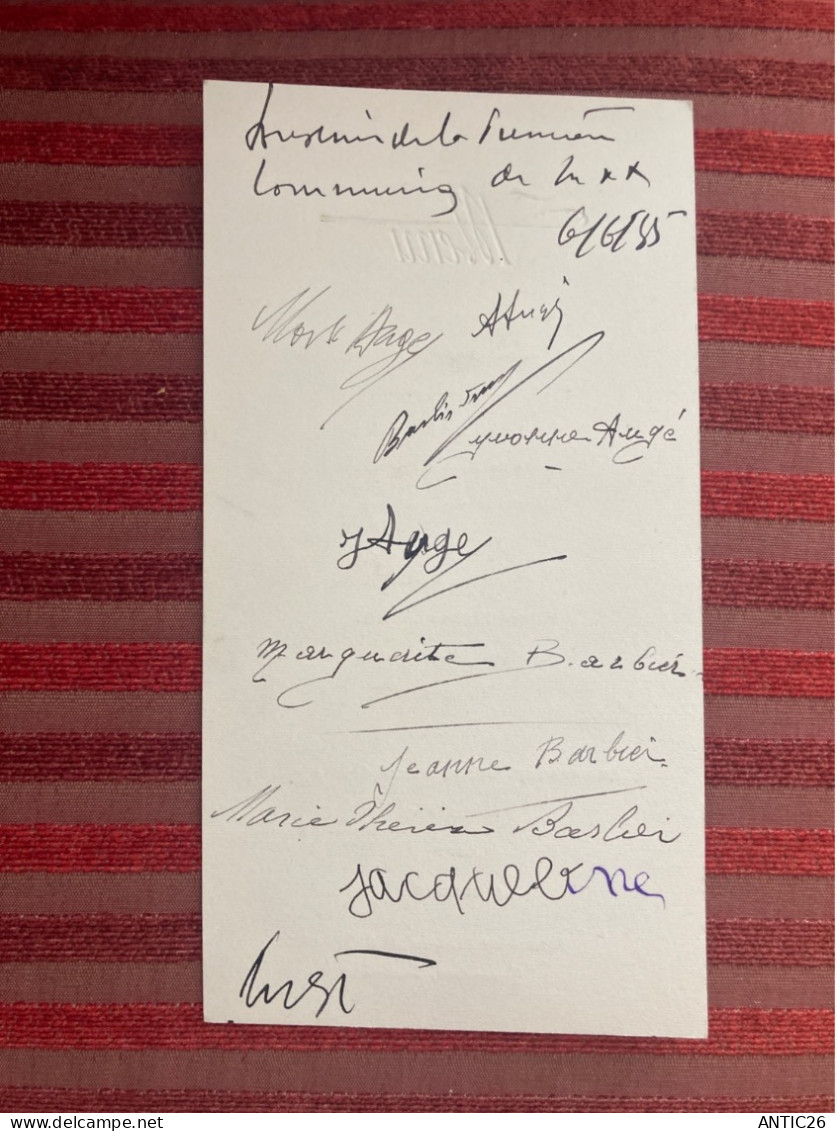 Souvenir de la Première
Communion de
6/6/35
Menu
Augé
Barbier
Yvonne Augé
J Auge
Marguerite Barbier
Jeanne Barbier
Marie Thérèse Barbier
Jacqueline
delcampe.net
ANTIC26